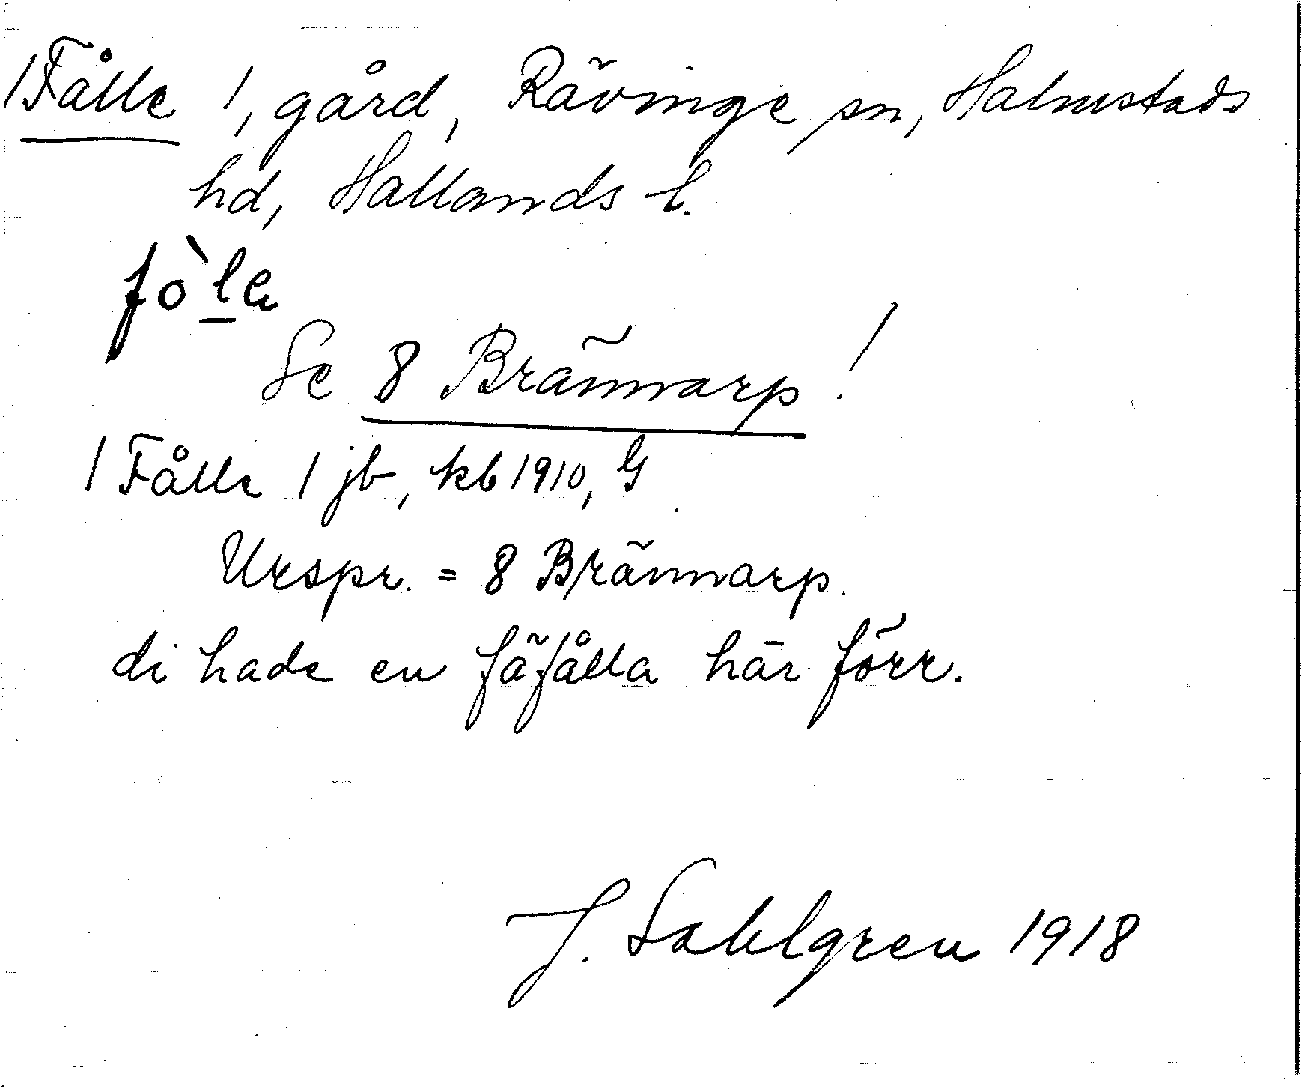 1 Fålle 1, gård, Rävinge sn, Halmstads
hd, Hallands l.
Se 8 Brännarp!
1 Fålle 1 jb, kb 1910, G
Urspr. = 8 Brännarp.
di hade en fäfålla här förr.
J. Sahlgren 1918